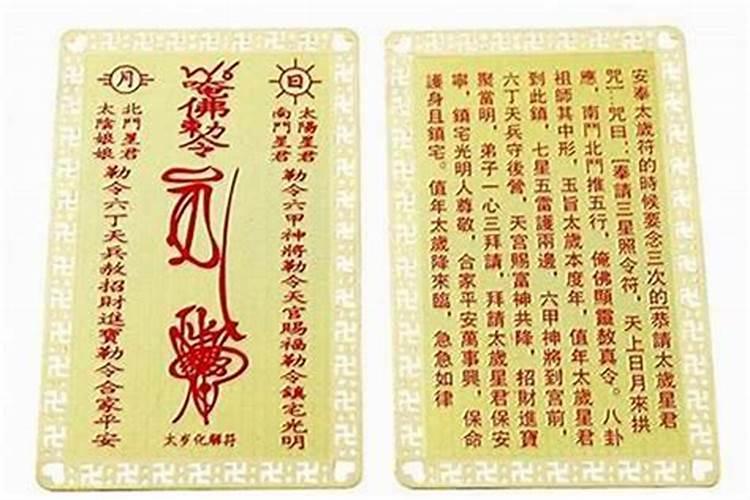 日
太陽星君
南鬥星君
勒令六甲神將勒令天官賜福勒令鎮宅光明
唵佛勅令
太岁化解符
月
北鬥星君
太陰娘娘
勒令六丁天兵赦招財進寶勒令合家平安
安奉太歲符的時候要念三次的[恭請太歲星君
咒]...咒曰:[奉請三星照令符,天上日月來拱
應,南鬥北鬥推五行,俺佛顯靈敖真令。八卦
祖師其中形,玉旨太歲本度年,值年太歲星君
到此鎮,七星五雷護兩邊,六甲神將到宮前,
六丁天兵守後營,天官賜富神共降,招財進寶
聚當明,弟子一心三拜請,拜請太歲星君保安
寧,鎮宅光明人尊敬,合家平安萬事興,保命
護身且鎮宅。值年太歲降來臨,急急如律